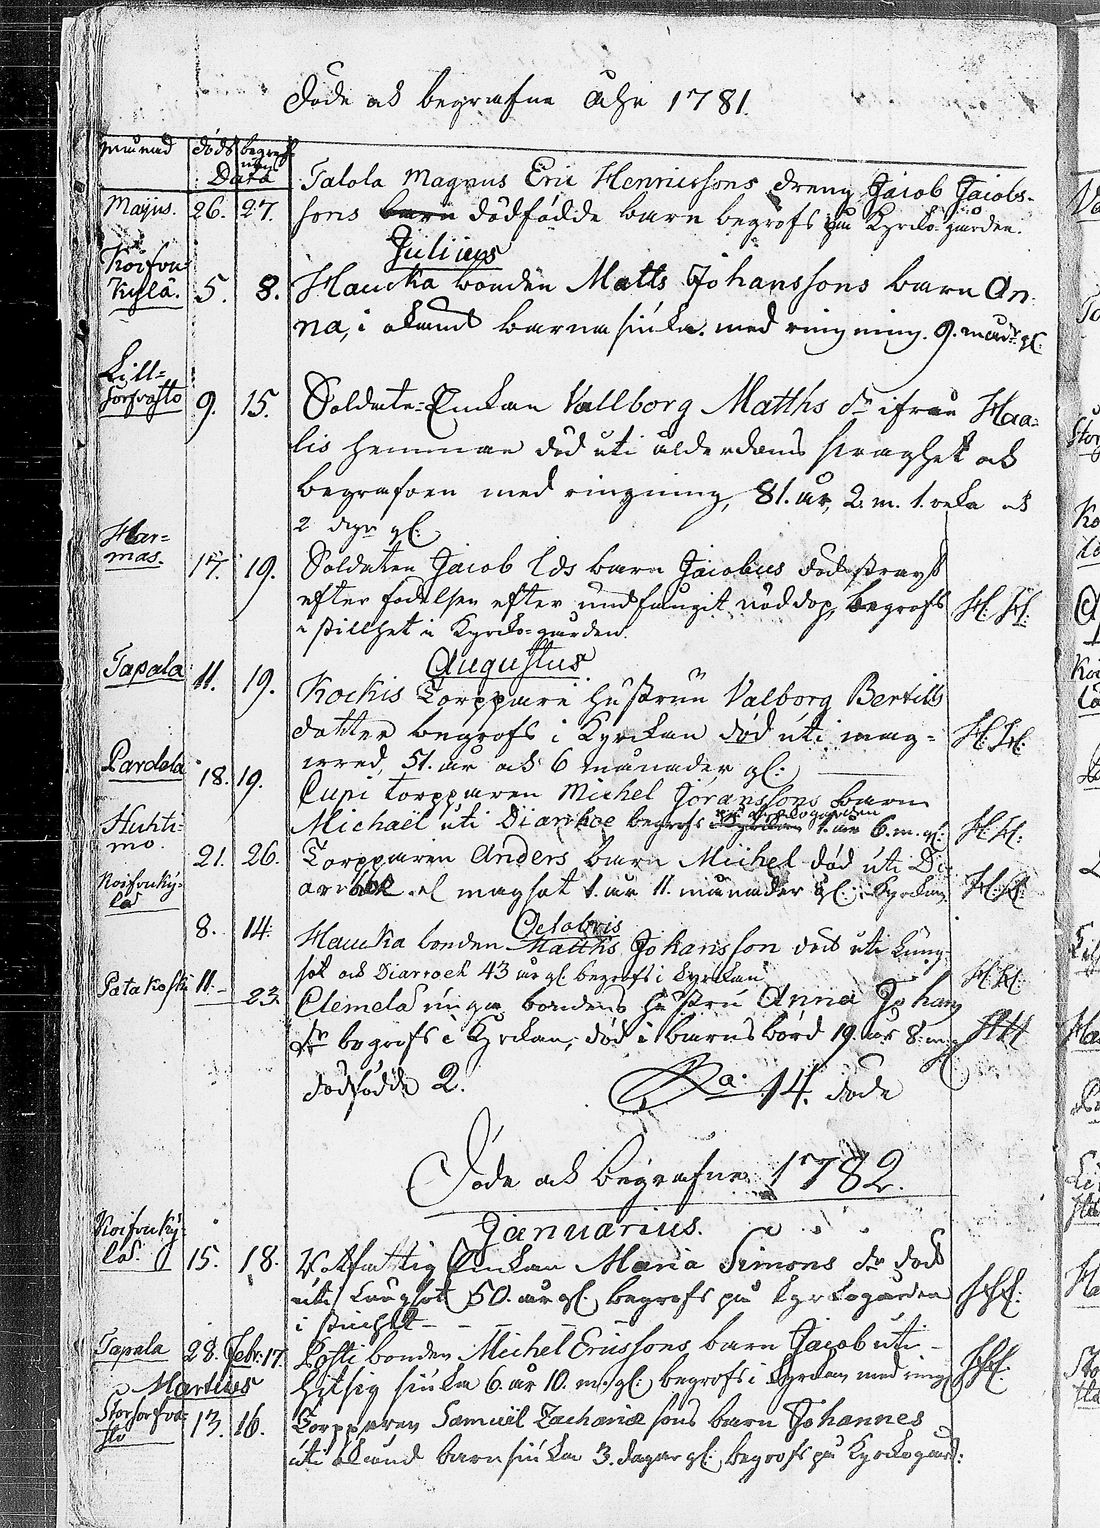 Döde och begrafne Åhr 1781.
månad döds begraf
nings
Data
Talola Magnus Eric Henricssons dreng Jacob Jacobs-
Maijus. 26. 27. sons barn dödfödde barn begrofs på Kyrko gården.
Julius
Koifvu
Kylä. 5. 8. Haucka bonden Matts Johanssons barn An
na, i okänd barnasiuka. med ringning. 9. månr gl.
Lill-
sorfvasto 9. 15. Soldate-Enkan Vallborg Matths dr ifrån Haa-
lis hemman död uti ålderdoms svaghet och
begrafven med ringning, 81. år, 2. m. 1. veka och
2 dagr gl.
Har-
mas. 17. 19. Soldaten Jacob Lds barn Jacobus död strax
efter födelsen efter undfångit nöddop, begrofs H. H.
i stillhet i Kyrko-gården.
Augustus.
Tapala 11. 19. Kockis Torppare hustrun Valborg Bertils
dotter begrofs i Kyrckan död uti mag- H. H.
wred, 51. år och 6 månader gl:
Pardela 18. 19. Cupi torpparen Michel Joranssons barn
Michaël uti Diarrhoe begrofs på kyrkogården 1. år 6. m. gl. H. H.
Huhti-
mo. 21. 26. Torpparen Anders barn Michel död uti Di-
arrhoe el magsot 1. år 11. månader gl. i Kyrckan H. H.
Koifvuky-
lä
Octobris
8. 14. Haucka bonden Matths Johansson död uti Lung-
sot och Diarroeh 43 år gl. begrofs i Kyrckan H. H.
Patakoski 11. 23. Clemelä unga bondens hustru Anna Johans
dr begrofs i Kyrckan, död i barnsbörd 19. år 8. m. H H
dödfödde 2. Sa. 14. döde
Döde och begrafne 1782.
Januarius.
Koifvuky-
lä. 15. 18. Rotfattig Enkan Maria Simons dr död
uti Lungsot 50. år gl. begrofs på kyrkogården H. H.
i stillhet
Tapala 28. Febr. 17. Posti bonden Michel Ericssons barn Jacob uti
hitsig siuka 6. år 10. m. gl. begrofs i Kyrckan med ring H. H.
Martius
Storsorfva-
sto 13. 16. Torpparen Samuël Zachariæ sons barn Johannes
uti okänd barnsiuka 3. dagar gl: begrofs på Kyrkogård: